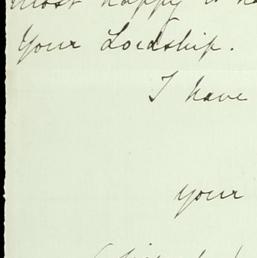 most happy
Your Lordship.
I have
your